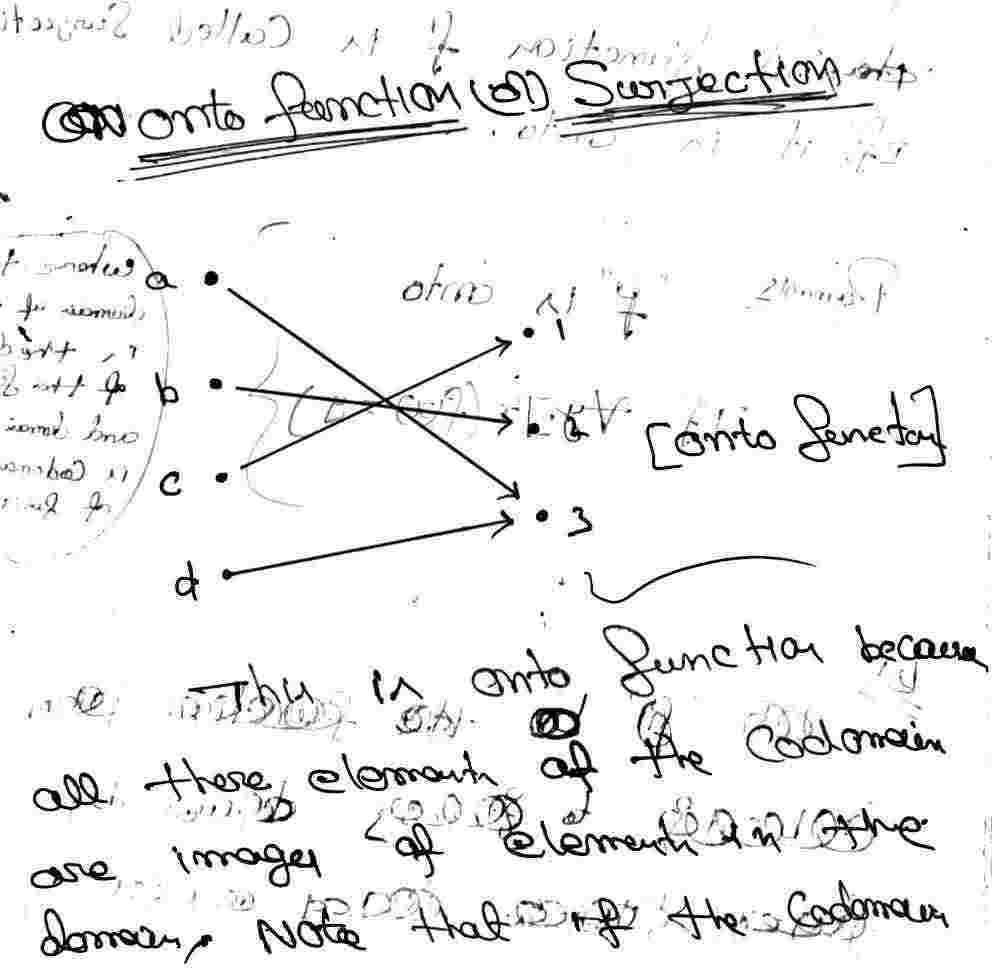 onto function (or) Surjection
a
1
b
2
[onto function]
c
3
d
This is onto function because
all these elements of the codomain
are images of elements in the
domain, Note that if the codomain